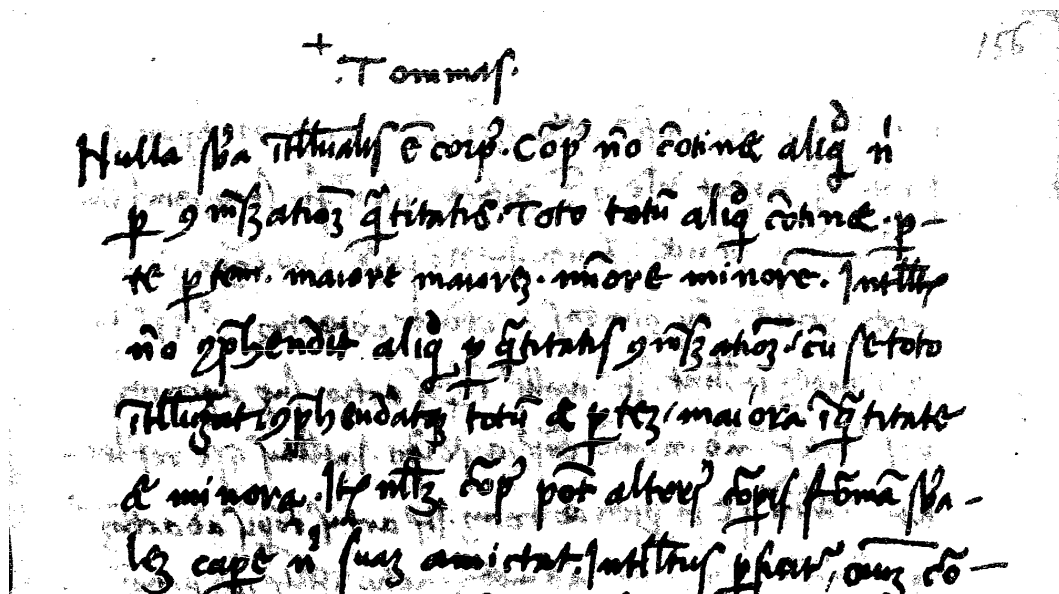 156
+
.Tommas.
Nulla sb'a ītllualis ē corp'. Cōp' nō cōtinet aliqd n'
p 9mēsatioz qtitatis. Toto totū aliqd cōtinet. p-
te ptem. maiore maiorez. mīore minorē. Intlls
nō 9phendit aliqd p qtitatis 9mēsatioz. cū se toto
ītlligat 9phendatqz totū & ptez, maiora ī qtitate
& minora. It nllz cōp' pōt alteri' cōpis formā sb'a-
lez cape n' suaz amictat. Intlltus pficit', ouz cō-